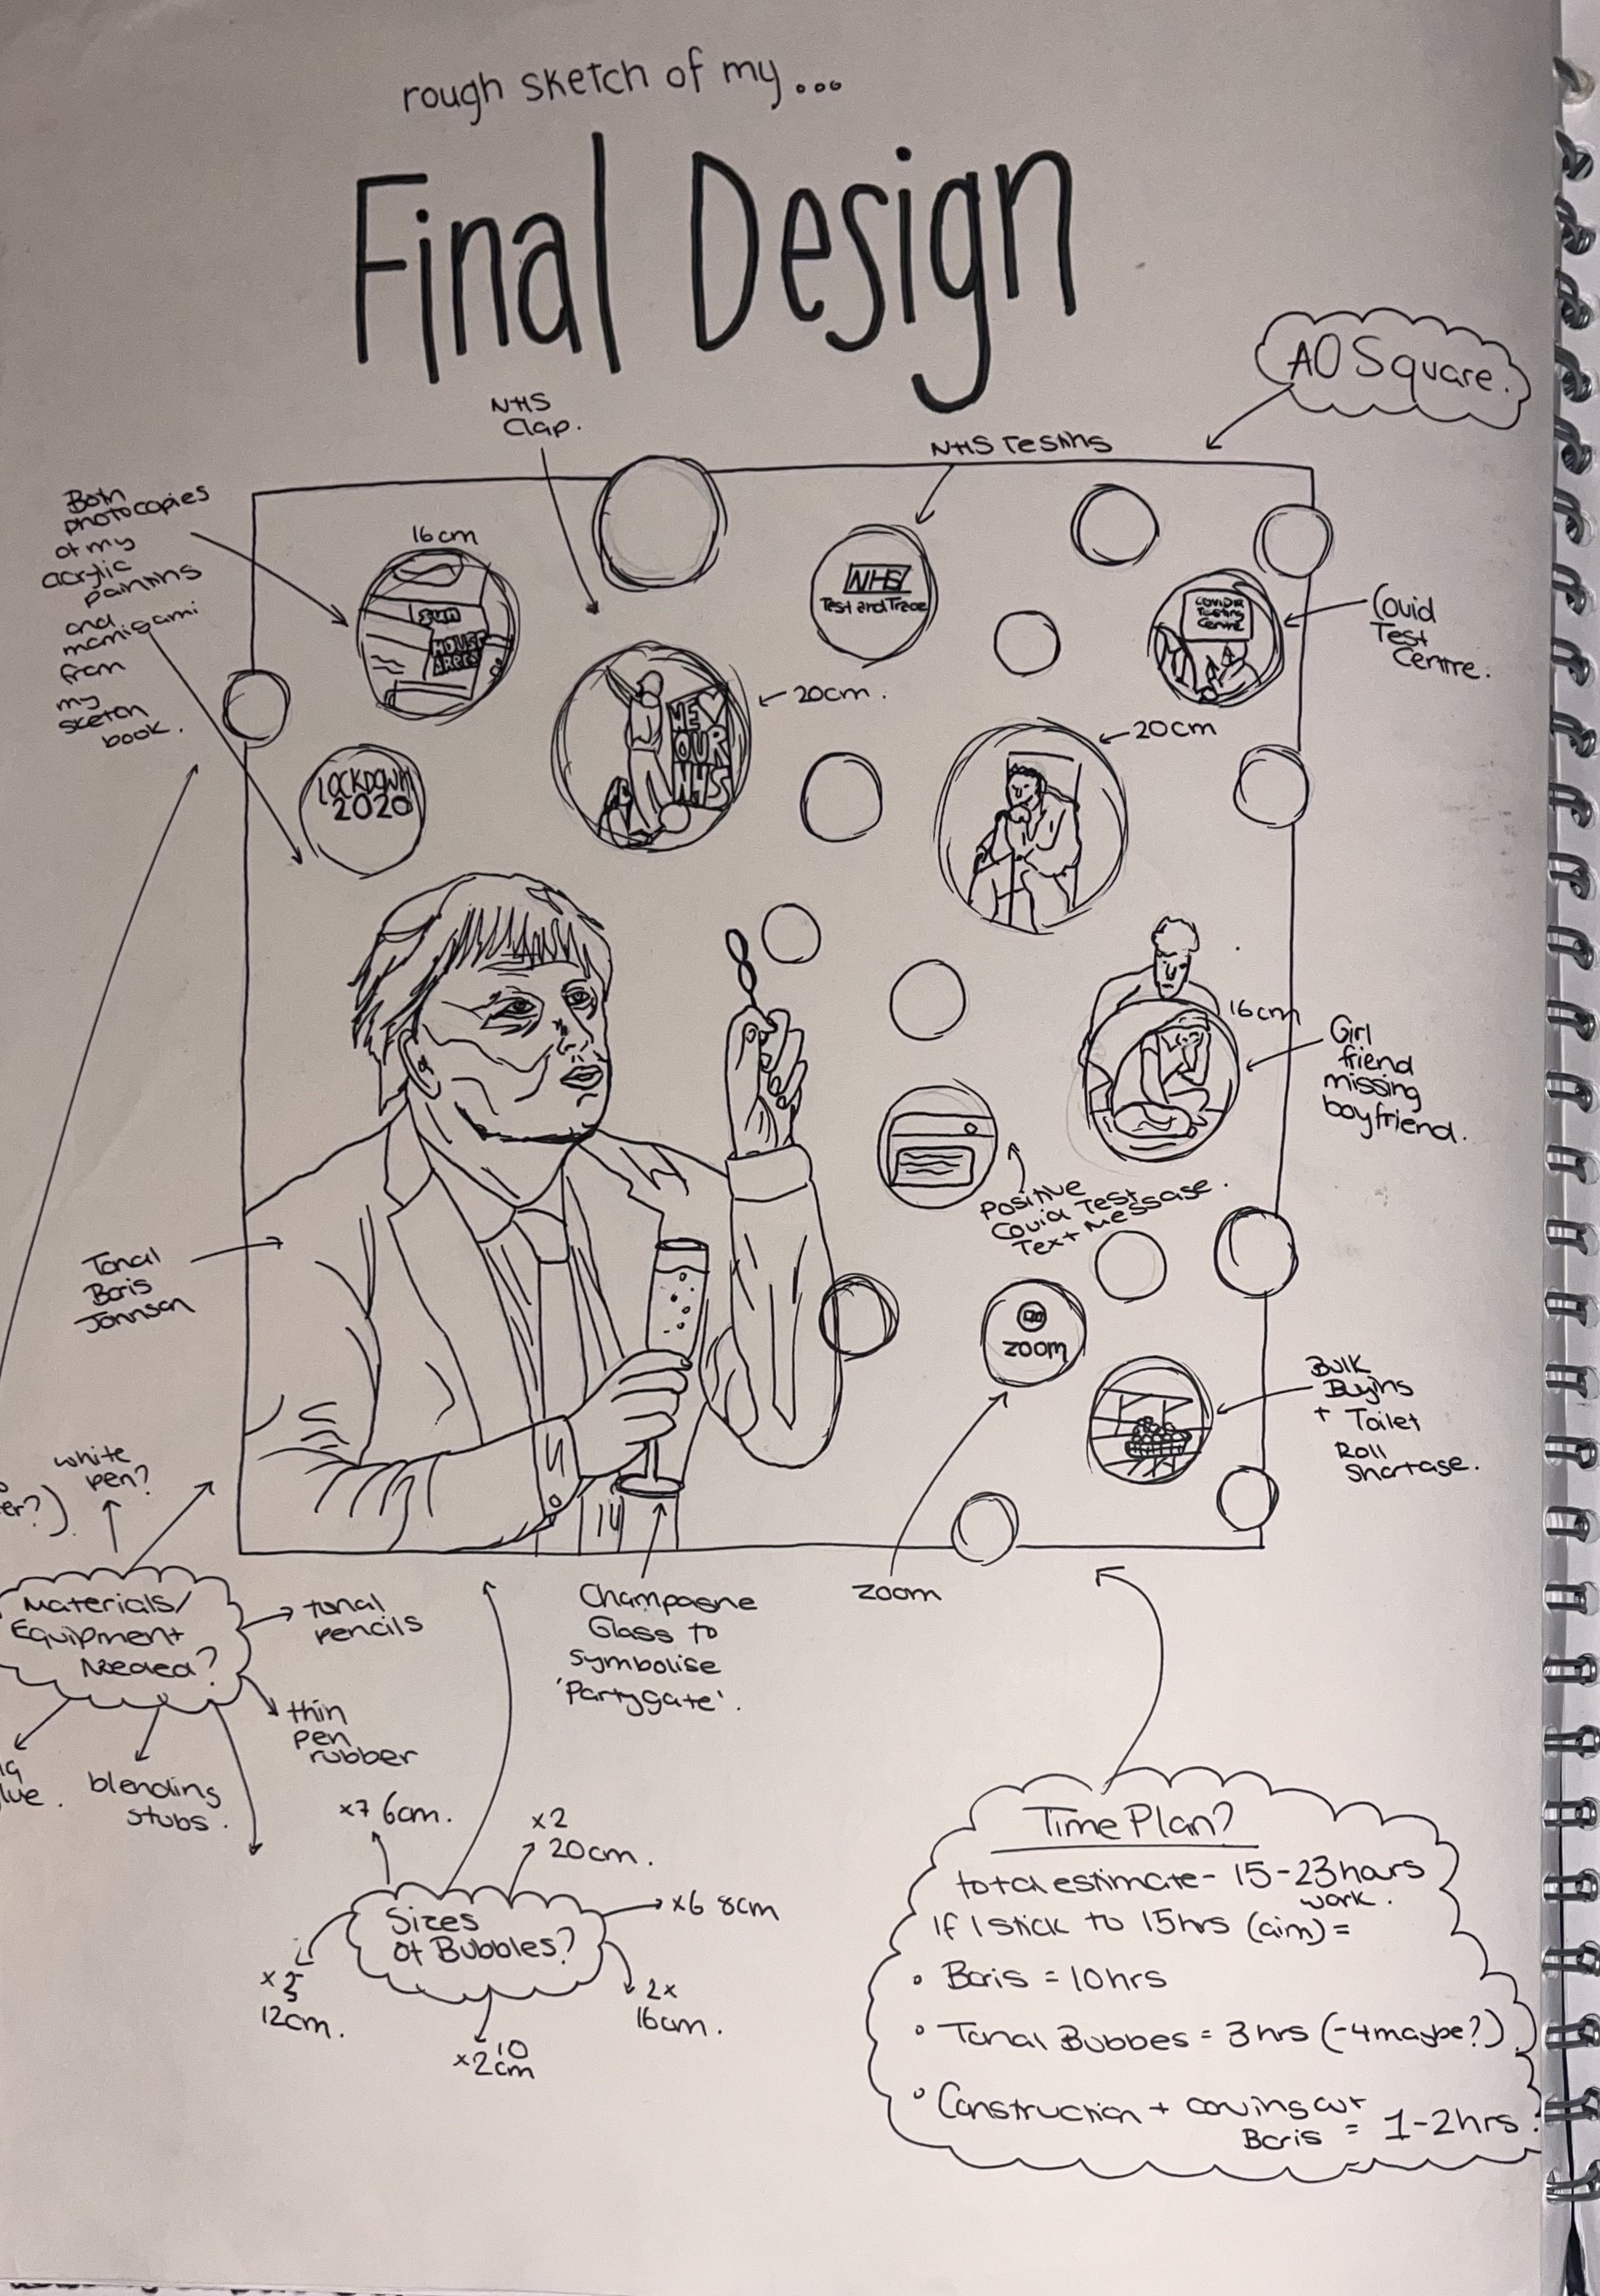 rough sketch of my...
Final Design
AO Square.
NHS
Clap.
NHS Testing
Both
photocopies
of my
acrylic
painting
and
from
my
sketch
book.
16cm
Sun
HOUSE
ARREST
NHS
Test and Trace
COVID19
Testing
Centre
Covid
Test
Centre.
20cm.
WE
OUR
NHS
20cm
LOCKDOWN
2020
16cm
Girl
friend
missing
boyfriend.
Positive
Covid Test
Text Message.
Tonal
Boris
Johnson
zoom
Bulk
Buying
+ Toilet
Roll
Shortage.
white
pen?
Materials/
Equipment
Needed?
tonal
pencils
thin
pen
rubber
blending
stubs.
Champagne
Glass to
symbolise
'Partygate'.
zoom
x7 6cm.
x2
20cm.
Sizes
of Bubbles?
x6 8cm
12cm.
x2 10
cm
2x
16cm.
Time Plan?
total estimate - 15-23 hours
work.
If I stick to 15hrs (aim) =
• Boris = 10hrs
• Tonal Bubbes = 3hrs (-4 maybe?)
• Construction + coving cut
Boris = 1-2hrs.